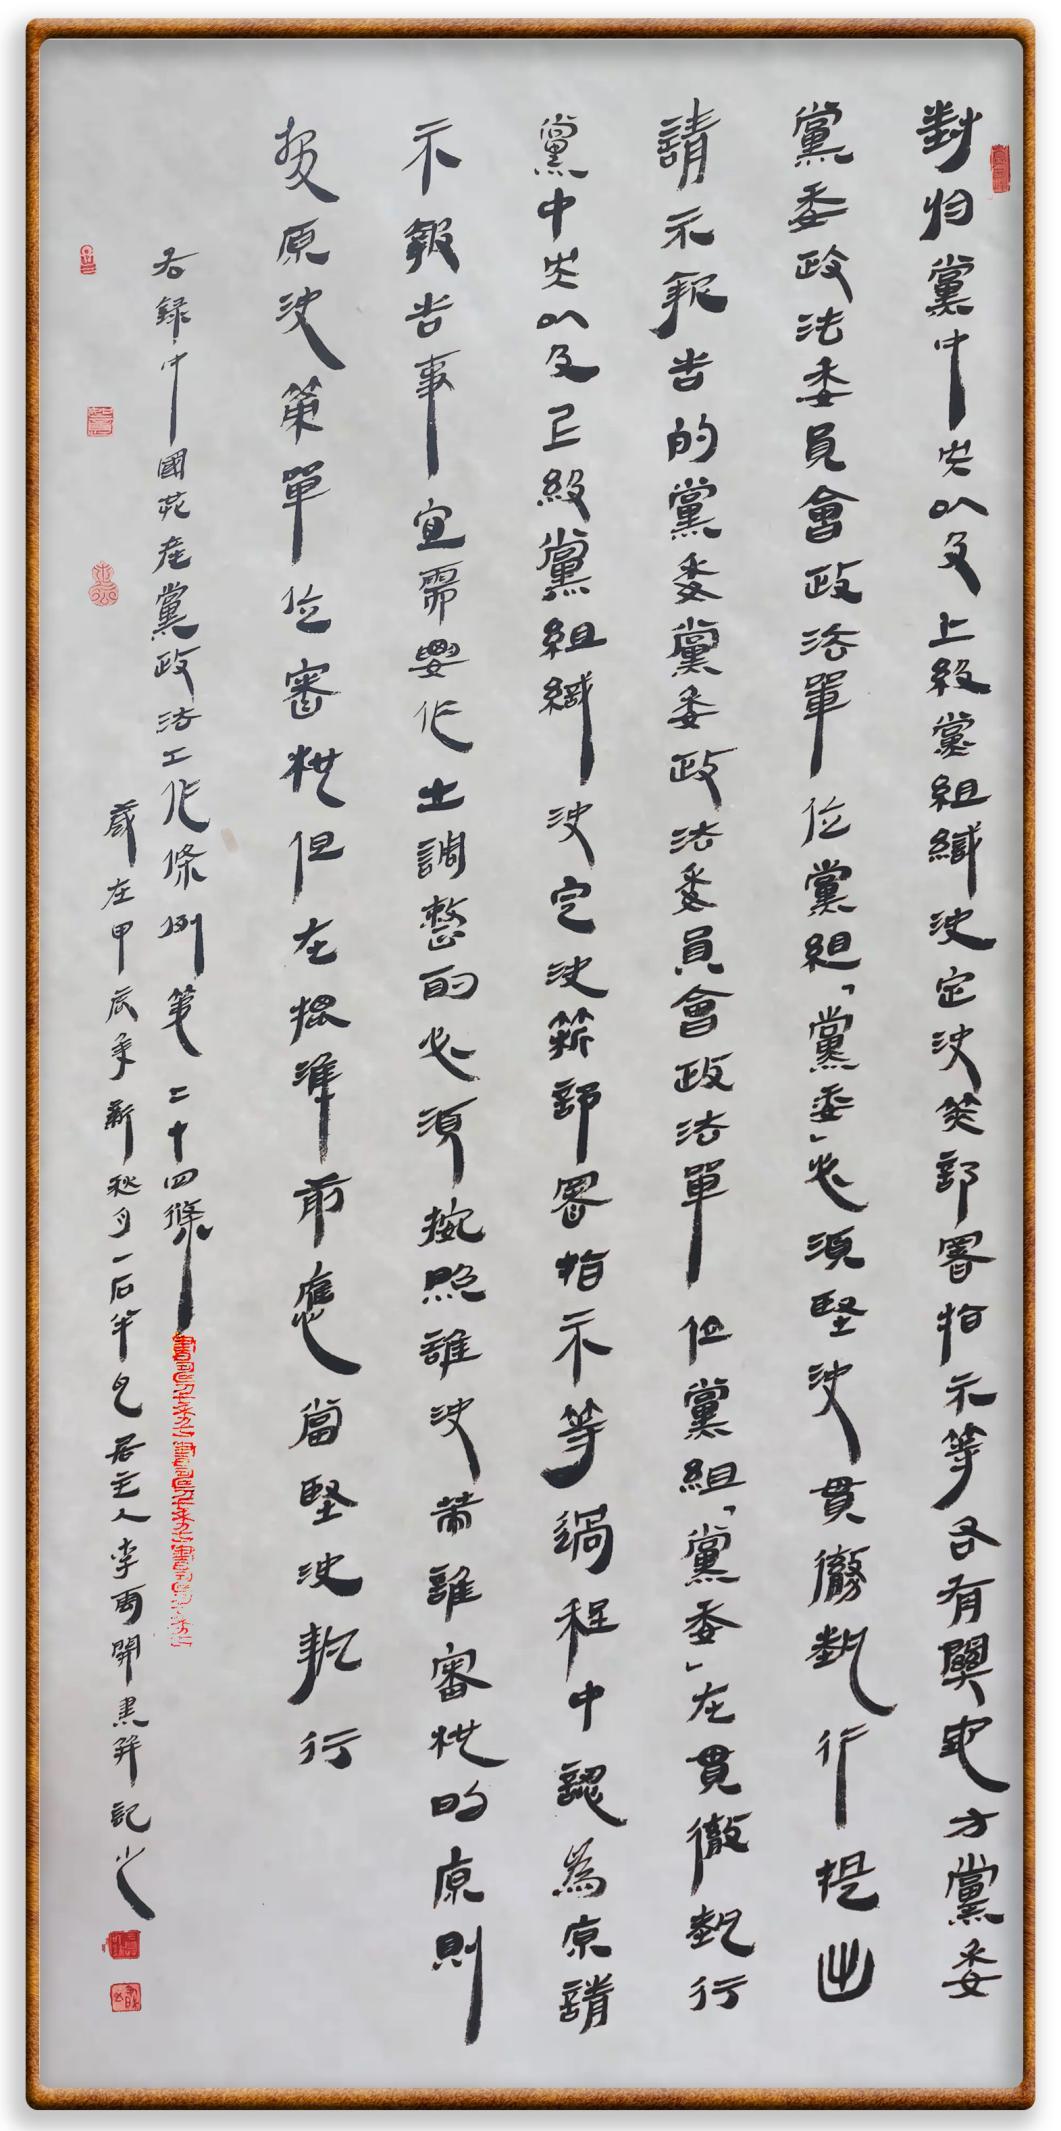 對归黨中央以及上級黨組織決定決策部署指示等各有關地方黨委
黨委政法委員會政法單位黨組「黨委」必須堅決貫徹執行提出
請示報告的黨委黨委政法委員會政法單位黨組「黨委」在貫徹執行
黨中央以及上級黨組織決定決策部署指示等過程中認為原請
示報告事宜需要作出調整的必須按照誰決策誰審批的原則
報原決策單位審批但在批準前應當堅決執行
右錄中國共產黨政法工作條例第二十四條
歲在甲辰年新秋月一石半瓦居主人李雨開書并記之